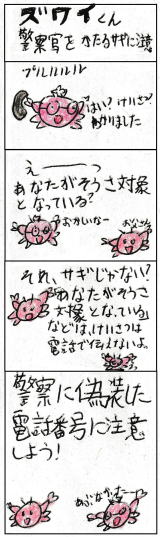 ズワイくん
警察官をかたるサギに注意
プルルルル
はい?けいさつ?
わかりました
えーーっ
あなたがそうさ対象
となっている?
おかしいなー
おなごさん
それ、サギじゃない?
あなたがそうさ
対象となっている
などは、けいさつは
電話で伝えないよ。
警察に偽装した
電話番号に注意
しよう!
あぶなかったー